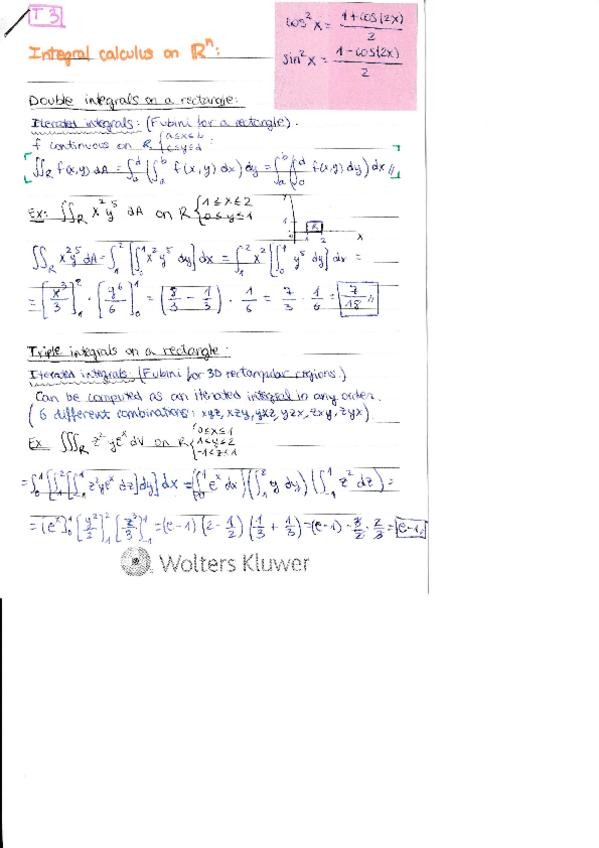 T3
cos²x = (1+cos(2x))/2
sin²x = (1-cos(2x))/2
Integral calculus on ℝⁿ:
Double integrals on a rectangle:
Iterated integrals: (Fubini for a rectangle).
f continuous on R {a≤x≤b
c≤y≤d
∬_R f(x,y) dA = ∫_c^d (∫_a^b f(x,y) dx) dy = ∫_a^b (∫_c^d f(x,y) dy) dx //
Ex: ∬_R x²y⁵ dA on R {1≤x≤2
0≤y≤1
∬_R x²y⁵ dA = ∫_1^2 [∫_0^1 x²y⁵ dy] dx = ∫_1^2 x² [∫_0^1 y⁵ dy] dx =
= [x³/3]_1^2 · [y⁶/6]_0^1 = (8/3 - 1/3) · 1/6 = 7/3 · 1/6 = 7/18 //
Triple integrals on a rectangle:
Iterated integrals: (Fubini for 3D rectangular regions.)
Can be computed as an iterated integral in any order.
(6 different combinations: xyz, xzy, yxz, yzx, zxy, zyx)
Ex ∭_R z²yeˣ dV on R {0≤x≤1
1≤y≤2
-1≤z≤1
= ∫_0^1 [∫_1^2 [∫_-1^1 z²yeˣ dz] dy] dx = (∫_0^1 eˣ dx) (∫_1^2 y dy) (∫_-1^1 z² dz) =
= [eˣ]_0^1 [y²/2]_1^2 [z³/3]_-1^1 = (e-1) (2-1/2) (1/3 + 1/3) = (e-1) · 3/2 · 2/3 = e-1 //
Wolters Kluwer